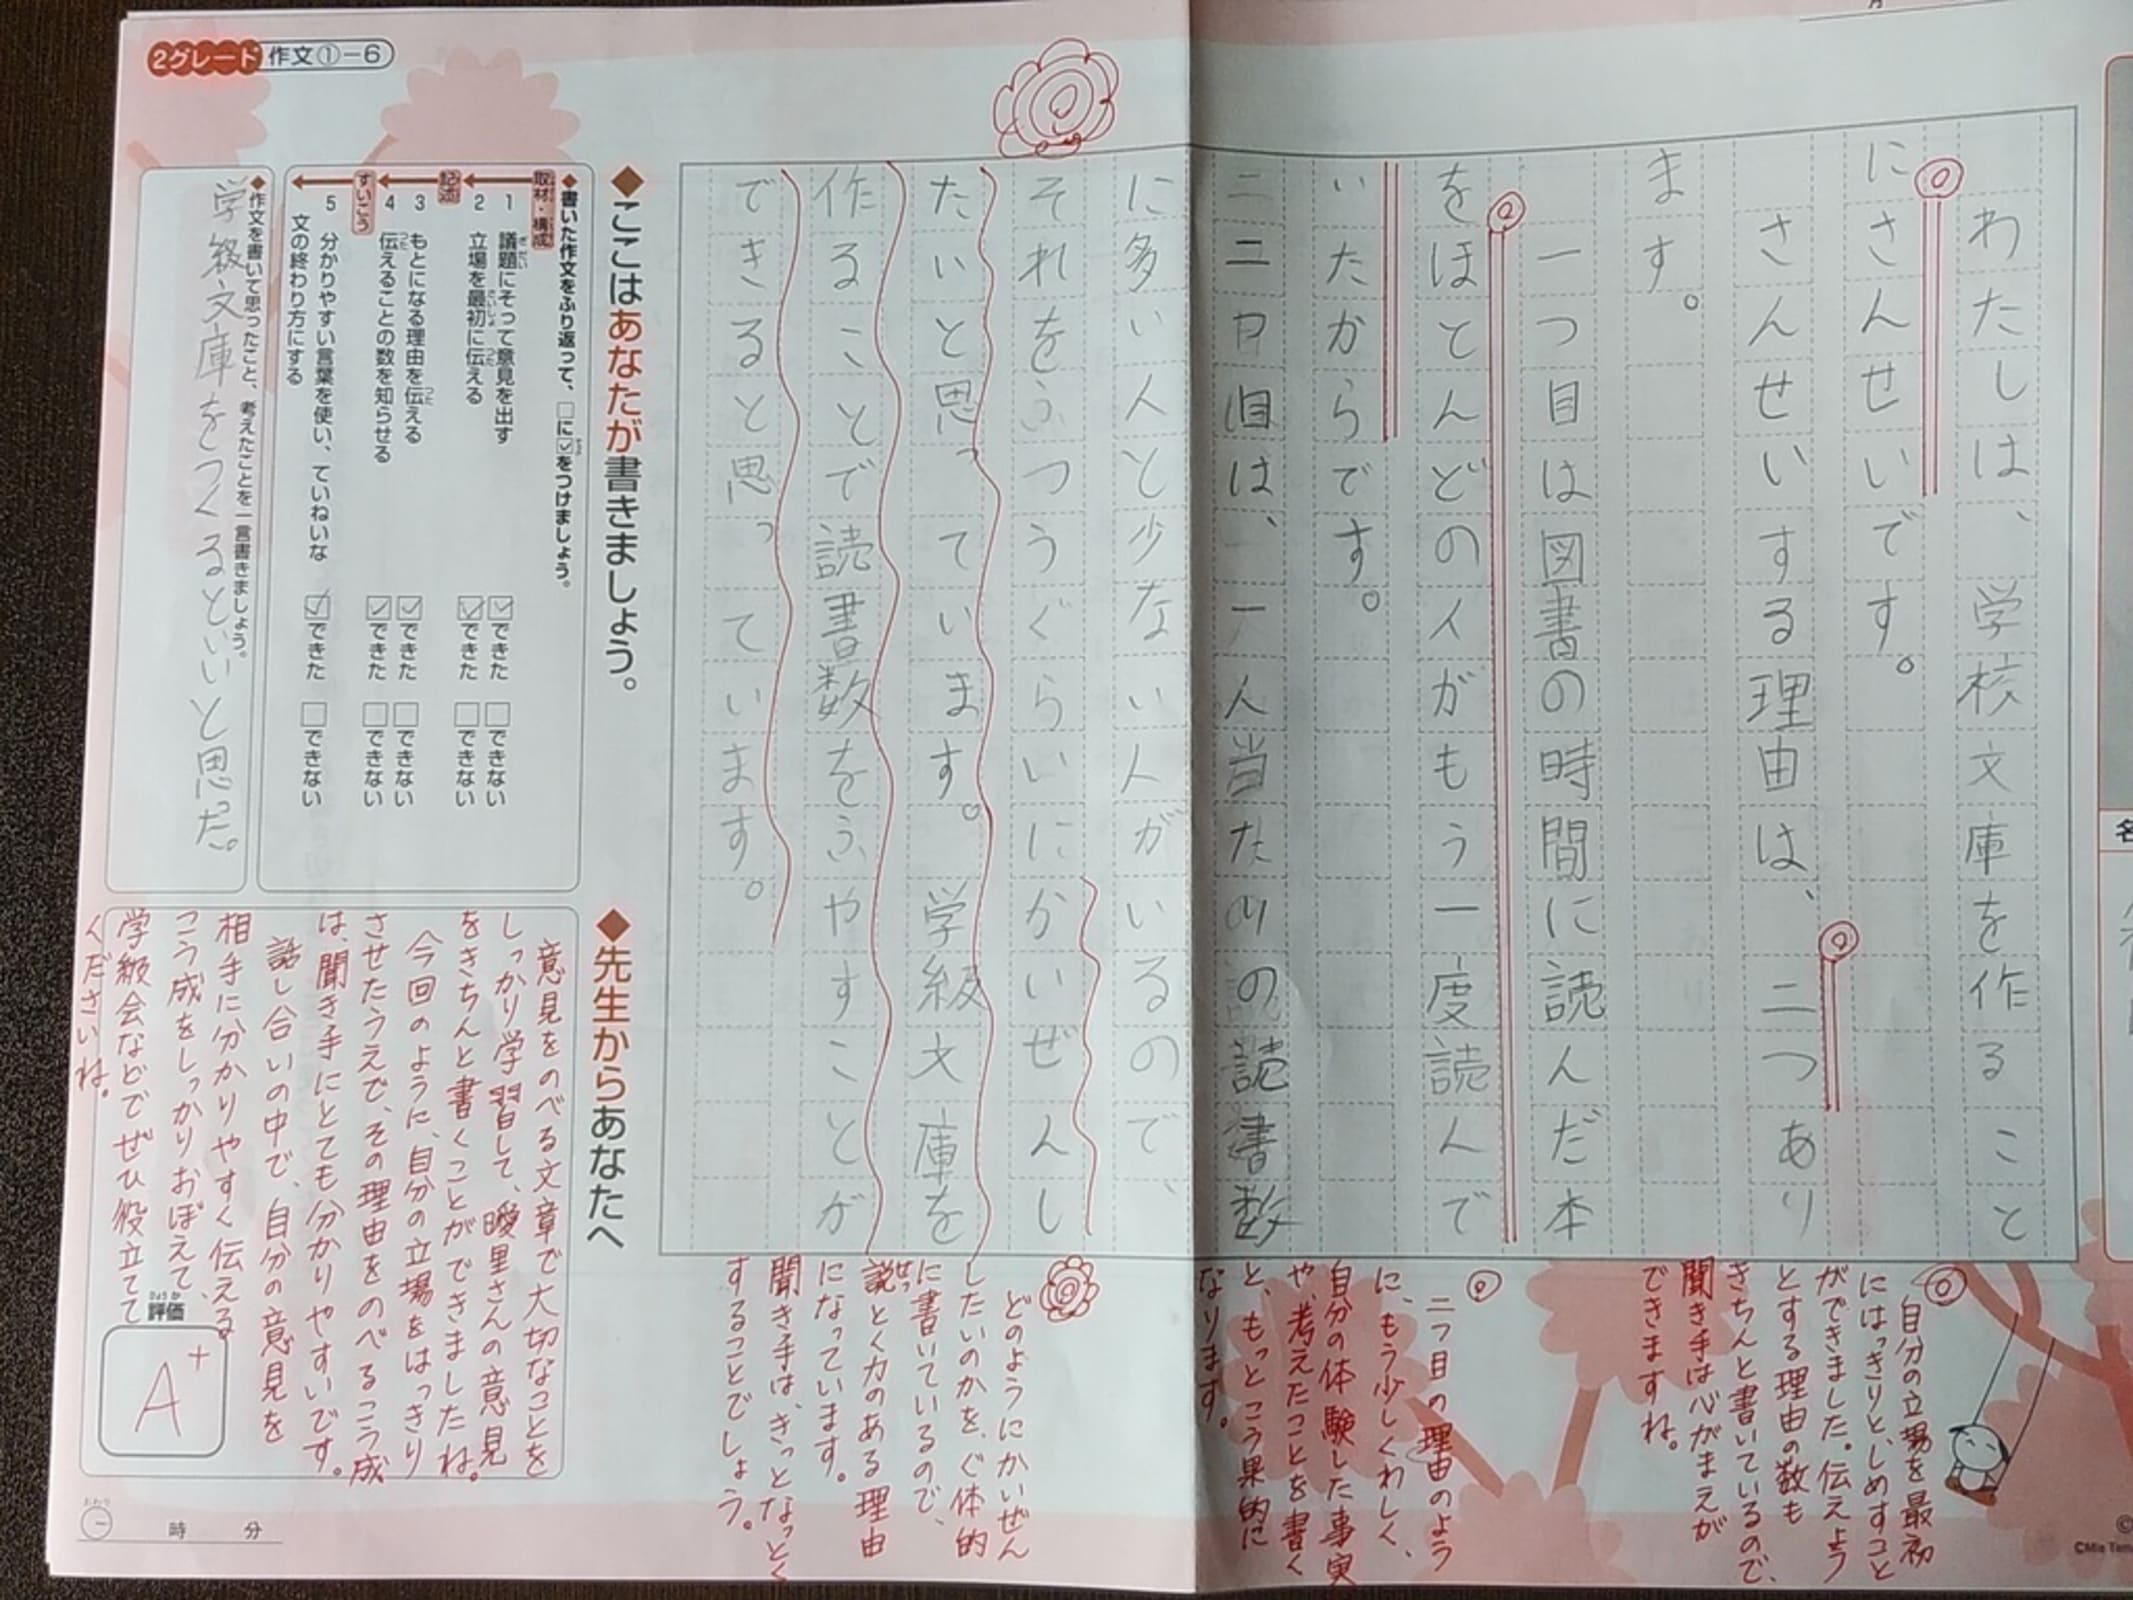 2グレード 作文①-6
わたしは、学校文庫を作ること
にさんせいです。
さんせいする理由は、二つあり
ます。
一つ目は図書の時間に読んだ本
をほとんどの人がもう一度読んで
いたからです。
二つ目は、一人当たりの読書数
に多い人と少ない人がいるので、
それをふつうぐらいにかいぜんし
たいと思っています。学級文庫を
作ることで読書数をふやすことが
できると思っています。
自分の立場を最初
にはっきりと、しめすこと
ができました。伝えよう
とする理由の数も
きちんと書いているので、
聞き手は心がまえが
できますね。
二つ目の理由のよう
に、もう少しくわしく、
自分の体験した事実
や、考えたことを書く
と、もっとこう果的に
なります。
どのようにかいぜん
したいのかを、ぐ体的
に書いているので、
説とく力のある理由
せっ
になっています。
聞き手は、きっとなっとく
することでしょう。
◆ここはあなたが書きましょう。
◆書いた作文をふり返って、□に☑をつけましょう。
取材・構成
1 議題にそって意見を出す ☑できた □できない
ぎだい
2 立場を最初に伝える ☑できた □できない
さいしょ つた
記述
3 もとになる理由を伝える ☑できた □できない
つた
4 伝えることの数を知らせる ☑できた □できない
つた
すいこう
5 分かりやすい言葉を使い、ていねいな
文の終わり方にする ☑できた □できない
◆作文を書いて思ったこと、考えたことを一言書きましょう。
学級文庫をつくるといいと思った。
◆先生からあなたへ
意見をのべる文章で大切なことを
しっかり学習して、曖里さんの意見
をきちんと書くことができましたね。
今回のように、自分の立場をはっきり
させたうえで、その理由をのべるこう成
は、聞き手にとても分かりやすいです。
話し合いの中で、自分の意見を
相手に分かりやすく伝える
こう成をしっかりおぼえて、
学級会などでぜひ役立てて
くださいね。
ひょうか
評価
A+
おわり
時 分